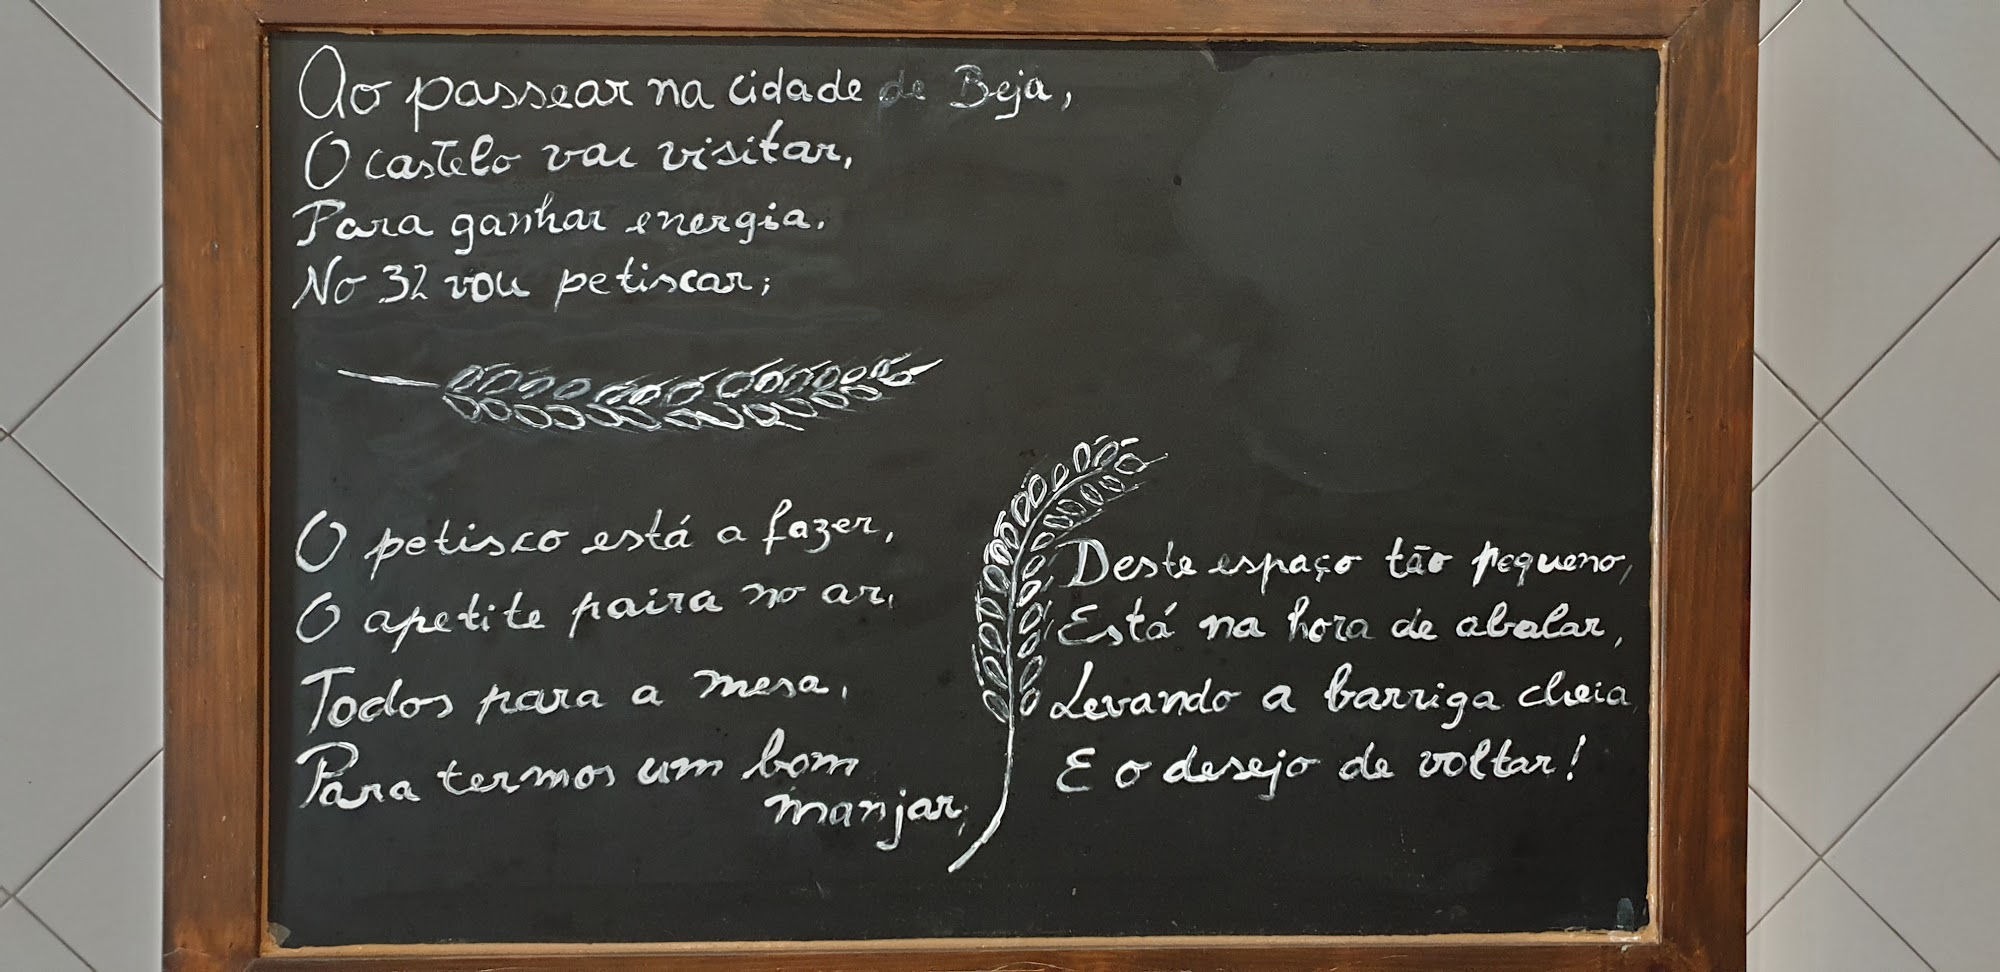 Ao passear na cidade de Beja,
O castelo vai visitar,
Para ganhar energia,
No 32 vou petiscar;
O petisco está a fazer,
O apetite paira no ar,
Todos para a mesa,
Para termos um bom
manjar;
Deste espaço tão pequeno,
Está na hora de abalar,
Levando a barriga cheia,
E o desejo de voltar!